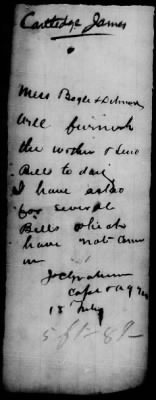 Cartledge James
Mess Bogle &
will furnish
the
Bills to day
I have asked
for several
Bills which
have not come
in
JC Graham
Capt & A Q M
18 July